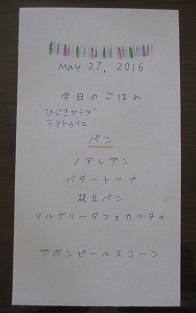 May 27, 2016
今日のごはん
ひじきサラダ
ラタトゥイユ
パン
ノアレザン
バタートップ
枝豆パン
マルゲリータフォカッチャ
ザボンピールスコーン